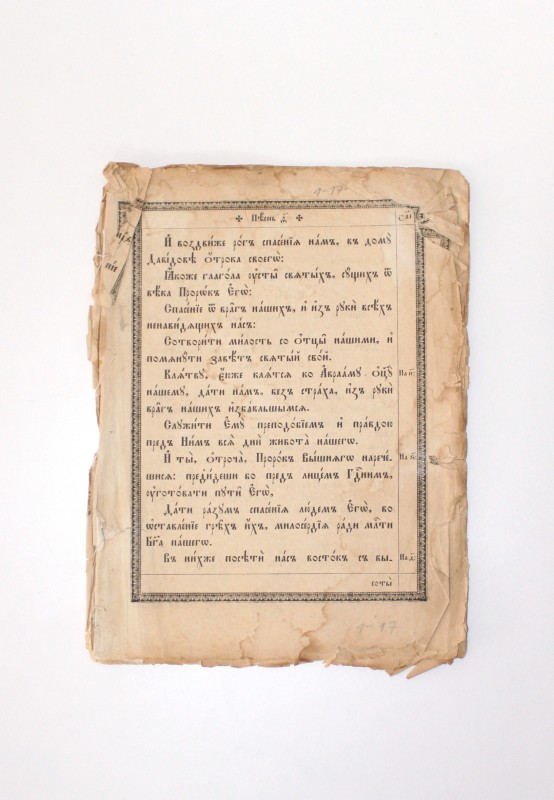 1-17
✠ Пѣ́снь ѳ҃. ✠
И҆ воздви́же ро́гъ спасе́нїѧ на́мъ, въ домꙋ̀
Даві́довѣ ѻ҆́трока своегѡ̀:
Ꙗ҆́коже глаго́ла ᲂу҆сты̀ свѧты́хъ, сꙋ́щихъ ѿ
вѣ́ка Проро́къ Є҆гѡ̀:
Спасе́нїе ѿ вра̑гъ на́шихъ, и҆ и҆з̾ рꙋкѝ всѣ́хъ
ненави́дѧщихъ на́съ:
Сотвори́ти ми́лость со ѻ҆тцы̑ на́шими, и҆
помѧнꙋ́ти завѣ́тъ свѧты́й сво́й.
Клѧ́твꙋ, є҆́юже клѧ́тсѧ ко А҆враа́мꙋ ѻ҆ц҃ꙋ̀
на́шемꙋ, да́ти на́мъ, без̾ стра́ха, и҆з̾ рꙋкѝ
вра̑гъ на́шихъ и҆зба́вльшымсѧ.
На и҃:
Слꙋжи́ти Є҆мꙋ̀ преподо́бїемъ и҆ пра́вдою
пред̾ Ни́мъ всѧ̑ дни̑ живота̀ на́шегѡ.
И҆ ты̀, ѻ҆троча̀, Проро́къ Вы́шнѧгѡ нарече́-
шисѧ: пред̾и́деши бо пред̾ лице́мъ Гдⷭ҇нимъ,
ᲂу҆гото́вати пꙋти̑ Є҆гѡ̀,
Да́ти ра́зꙋмъ спасе́нїѧ лю́демъ Є҆гѡ̀, во
ѡ҆ставле́нїе грѣ̑хъ и҆́хъ, милосе́рдїѧ ра́ди млⷭ҇ти
Бг҃а на́шегѡ.
Въ ни́хже посѣтѝ на́съ восто́къ съ вы-
На д҃:
соты̀
1-17